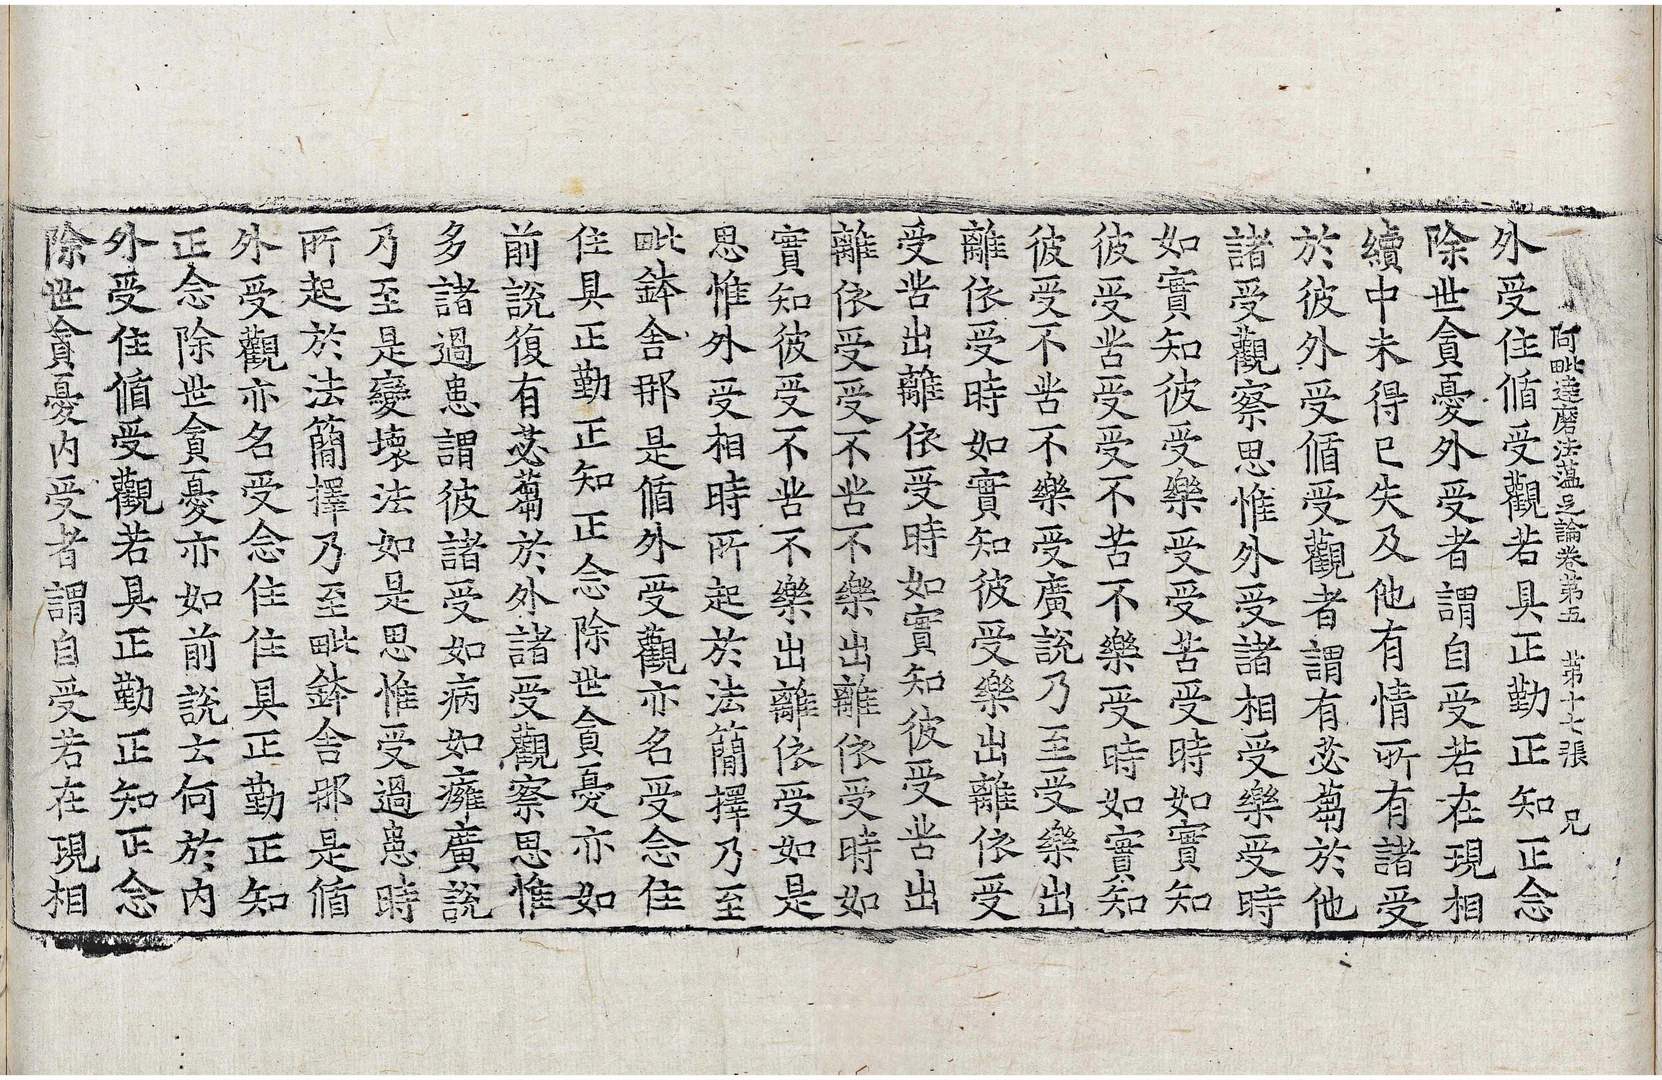 阿毗達磨法蘊足論卷第五　第十七張　兄
外受住循受觀若具正勤正知正念
除世貪憂外受者謂自受若在現相
續中未得已失及他有情所有諸受
於彼外受循受觀者謂有苾蒭於他
諸受觀察思惟外受諸相受樂受時
如實知彼受樂受受苦受時如實知
彼受苦受受不苦不樂受時如實知
彼受不苦不樂受廣說乃至受樂出
離依受時如實知彼受樂出離依受
受苦出離依受時如實知彼受苦出
離依受受不苦不樂出離依受時如
實知彼受不苦不樂出離依受如是
思惟外受相時所起於法簡擇乃至
毗鉢舍那是循外受觀亦名受念住
住具正勤正知正念除世貪憂亦如
前說復有苾蒭於外諸受觀察思惟
多諸過患謂彼諸受如病如癰廣說
乃至是變壞法如是思惟受過患時
所起於法簡擇乃至毗鉢舍那是循
外受觀亦名受念住住具正勤正知
正念除世貪憂亦如前說云何於內
外受住循受觀若具正勤正知正念
除世貪憂內受者謂自受若在現相